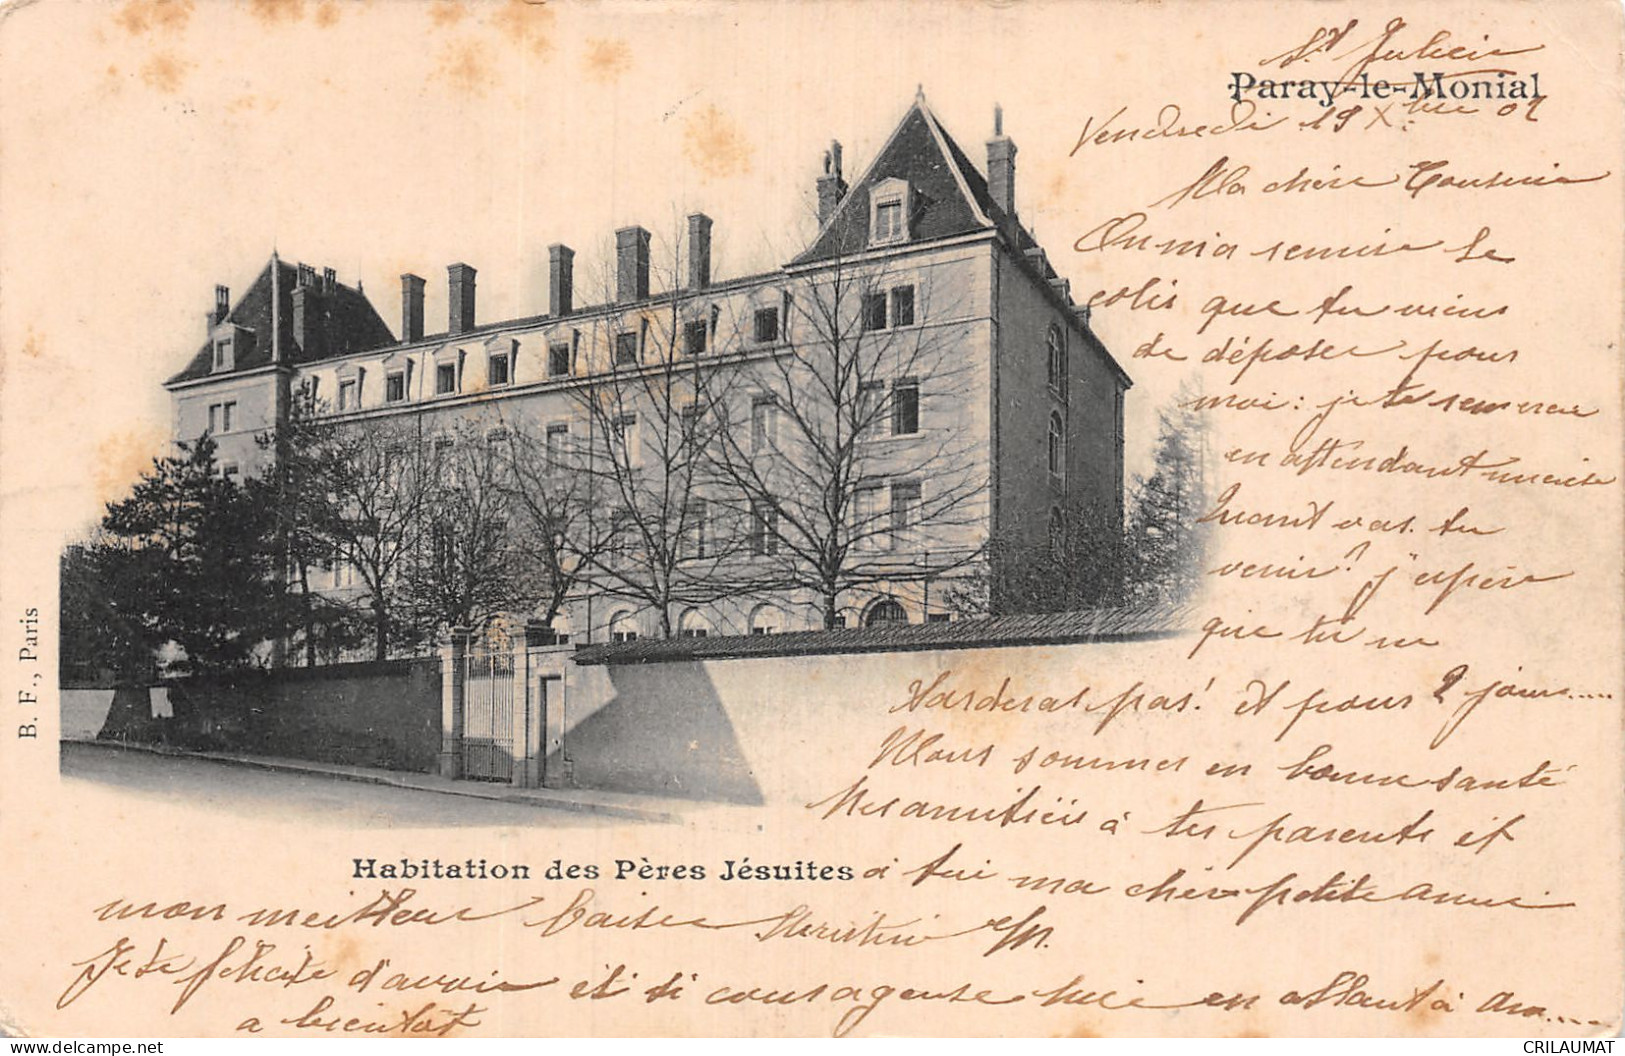 St Julien
Paray-le-Monial
Vendredi 19 Xbre 02
Ma chère Cousine
On m'a remis le
colis que tu viens
de déposer pour
moi : je te remercie
en attendant
Quant vas tu
venir? j'espère
que tu ne
tarderas pas! et pour 2 jours.....
Nous sommes en bonne santé
Mes amitiés à tes parents et
Habitation des Pères Jésuites
à toi ma chère petite amie
mon meilleur baiser
Je te félicite d'avoir été si courageuse hier en allant à
a bientôt
B. F., Paris
CRILAUMAT